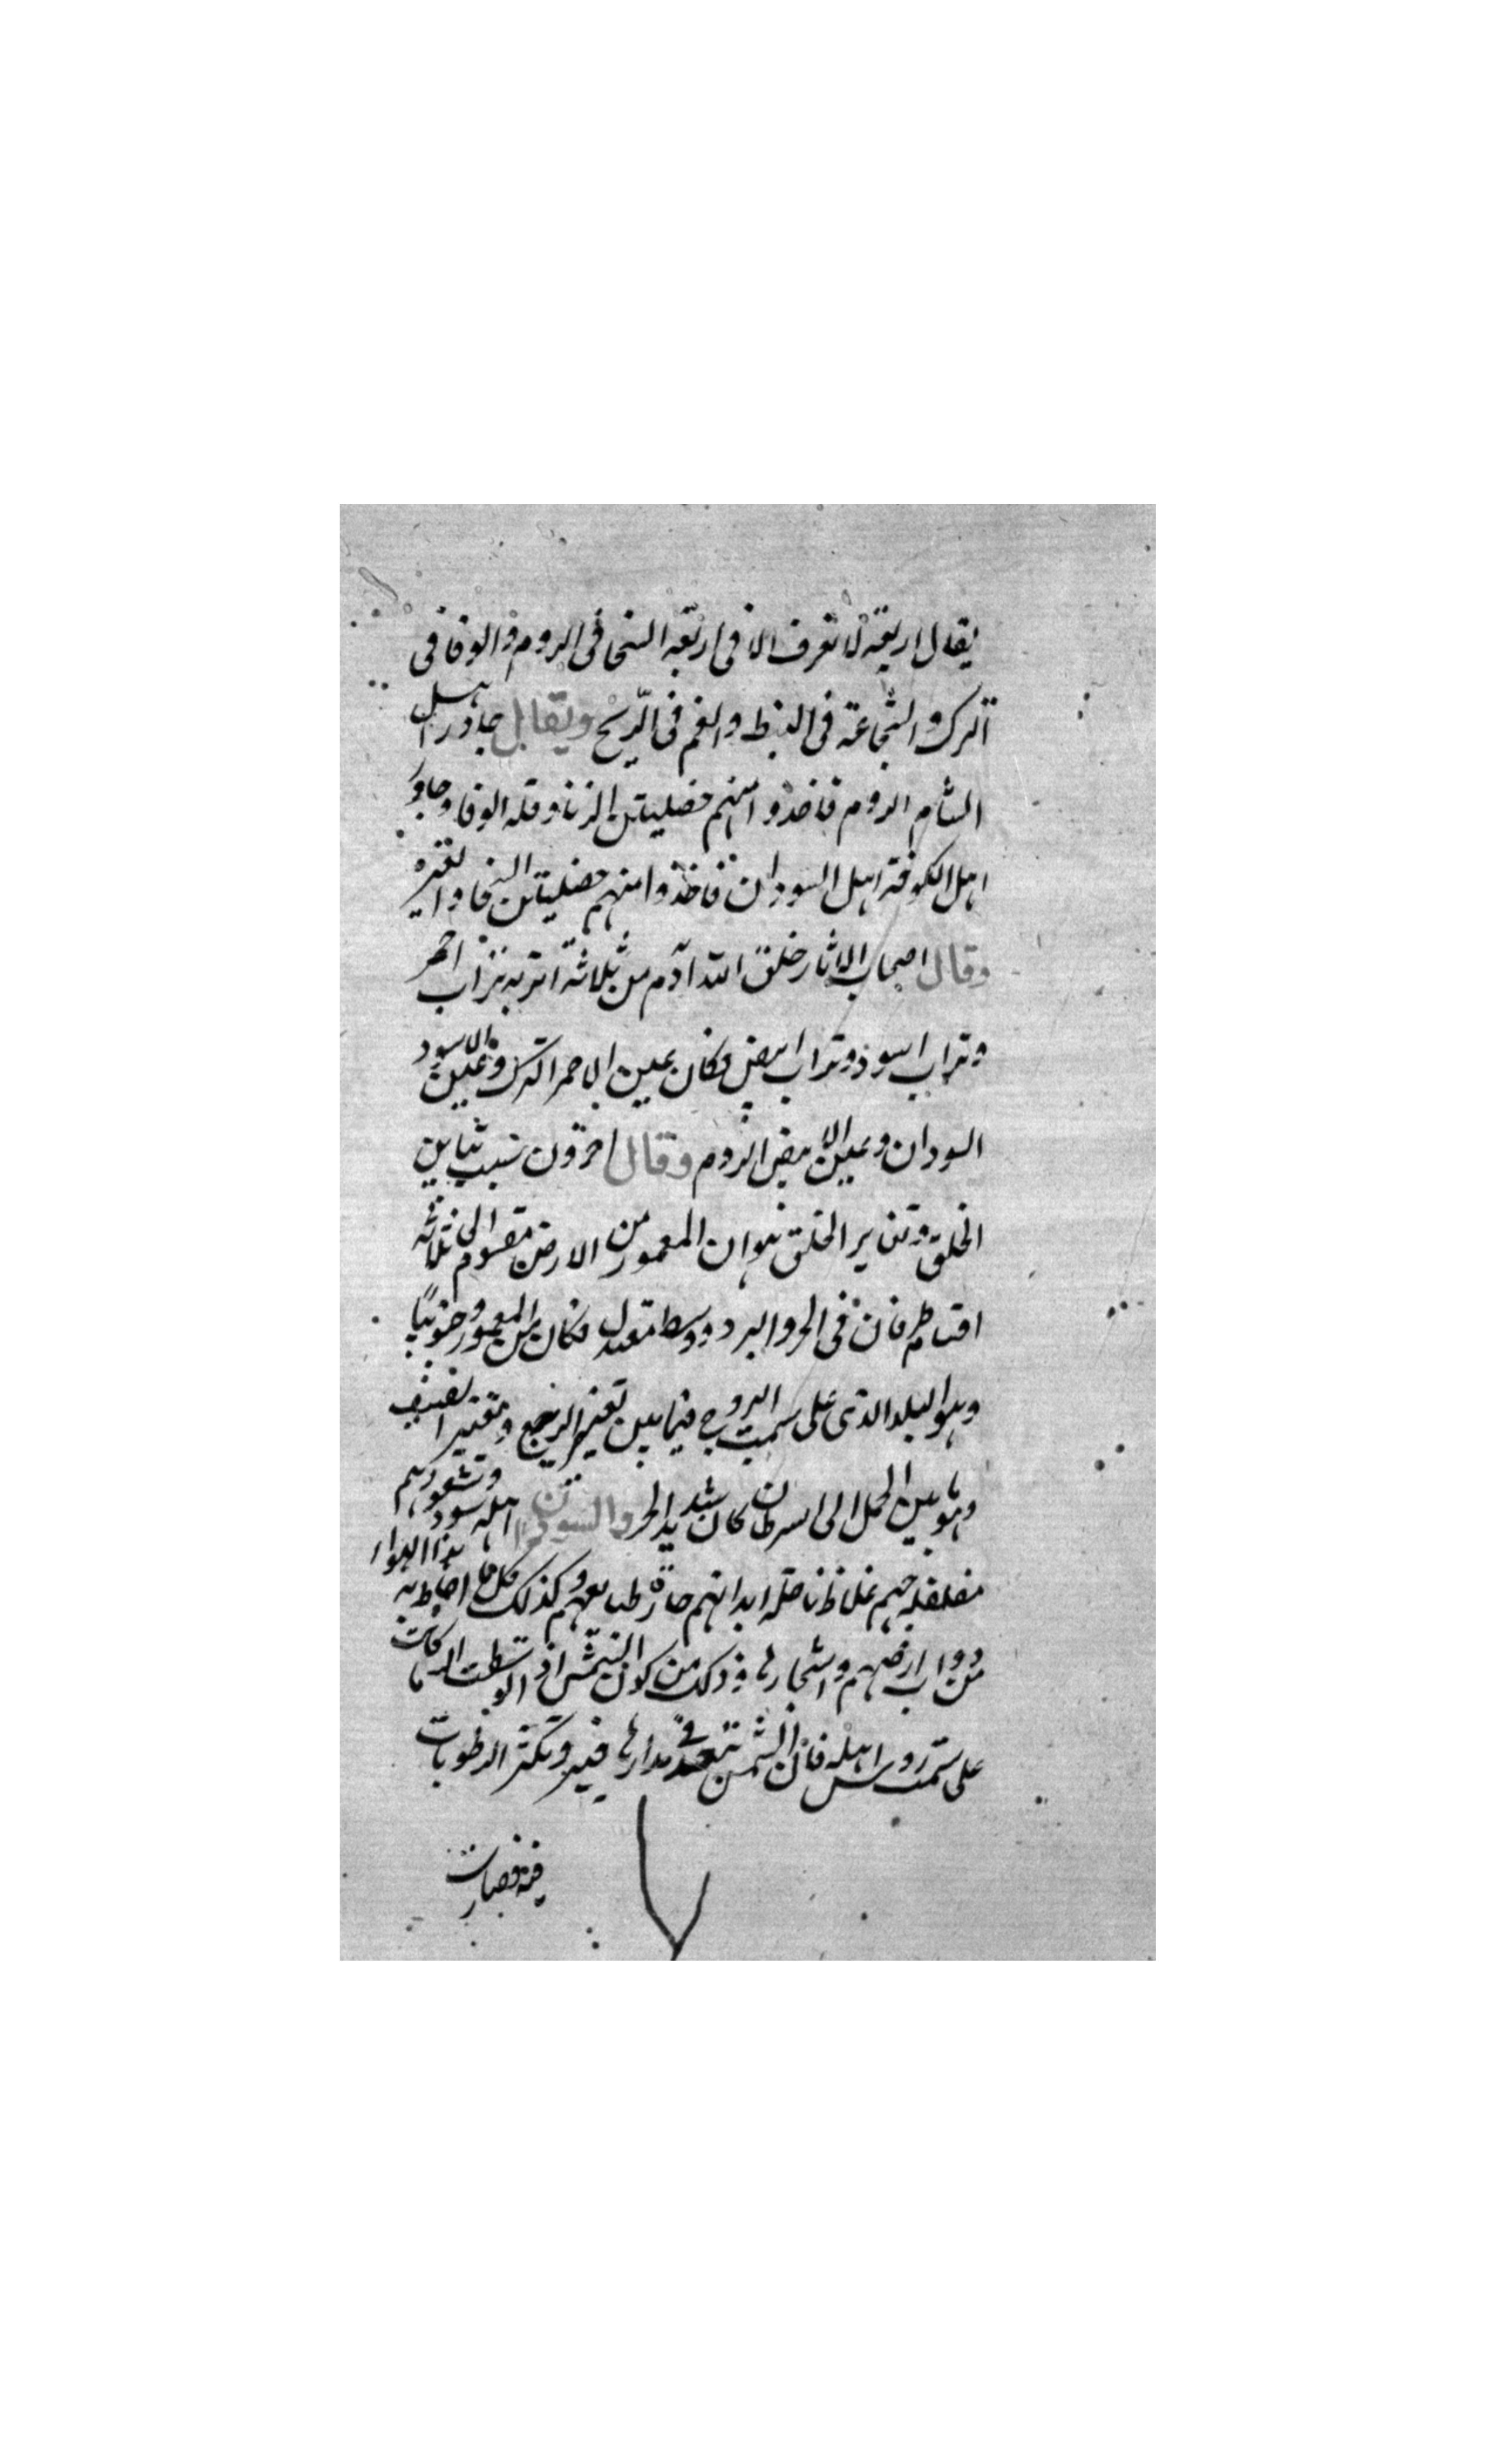 يقال اربعة لا تعرف الا فى اربعه السخا فى الروم والوفا فى
الترك والشجاعة فى القبط والغم فى الزنج ويقال جاور اهل
الشام الروم فاخذوا منهم خصليتن الزنا وقله الوفا وجاور
اهل الكوفة اهل السودان فاخذوا منهم خصليتن السخا والغيره
وقال اصحاب الاثار خلق الله آدم من ثلاثة اتربه تراب احمر
وتراب اسود وتراب ابيض فكان عين الاحمر الترك وعين الاسود
السودان وعين الابيض الروم وقال اخرون سبب تباين
الخلق وتغاير الخلق هو ان المعمور من الارض مقسوم الى ثلاثه
اقسام طرفان فى الحر والبرد ووسط معتدل فكان من المعمور جنوبيا
وهو البلد الذى على سمت البروج فيما بين
وهو بين الحمل الى السرطان كان شديد الحر والسودان اهله سود وشعورهم
مفلفله غلاظ ابدانهم حارة طبايعهم وكذلك كل ما احاط به هذا الهواء
من دواب ارضهم واشجارها وذلك من كون الشمس اذا توسطت السما كانت
على سمت روس اهله فان الشمس تبعد فى مدارها فيه وتكثر الرطوبات
فيه فصارت